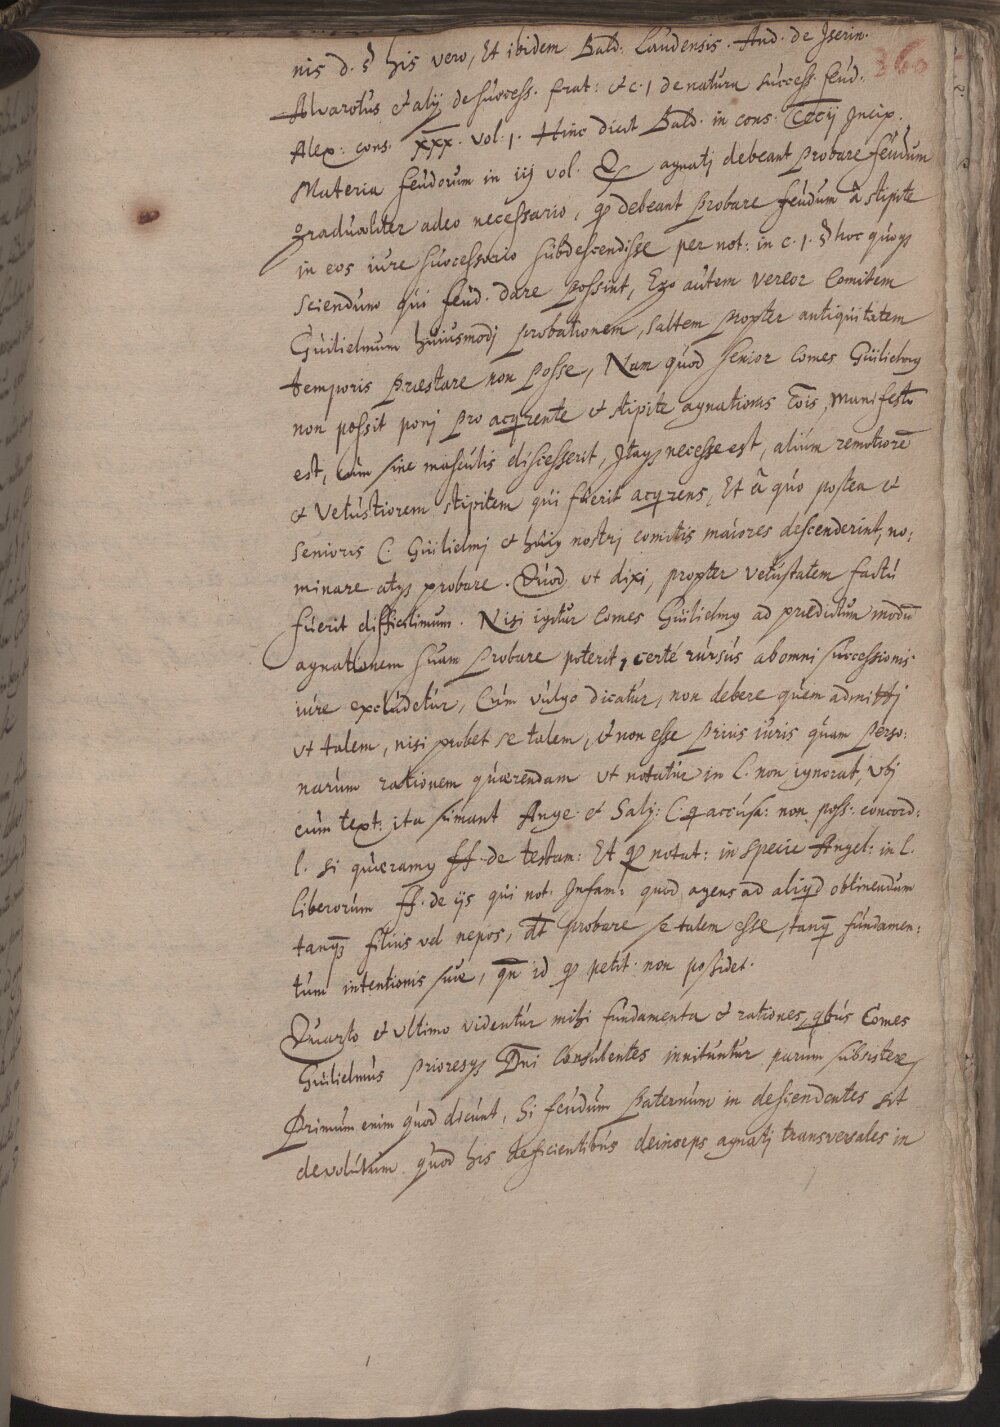 366
nis d. § his vero, Et ibidem Bald: Laudensis. And. de Iserin.
Alvarotus et alij de success. frat: et c. 1 de natura success. feud.
Alex: cons. xxx. vol. 1. Hinc dicit Bald. in cons: Incip.
Materia feudorum in iij vol. agnatj debeant probare feudum
gradualiter adeo necessario, qd debeant probare feudum â stipite
in eos iure successorio subdescendisse per not: in c. 1. § hoc quoqz
sciendum qui feud. dare possint, Ego autem vereor Comitem
Guilielmum huiusmodj probationem, saltem propter antiquitatem
temporis præstare non posse, Nam quod senior Comes Guilielmg
non possit ponj pro acqrente et stipite agnationis cōis, manifestū
est, cum sine masculis discesserit, Itaqz necesse est, alium remotiorē
et vetustiorem stipitem qui fuerit acqrens, Et â quo postea et
senioris C. Guilielmj et huig nostrj comitis maiores descenderint, no:
minare atqz probare. Quod, ut dixi, propter vetustatem factu
fuerit difficilimum. Nisi igitur Comes Guilielmg ad prædictum modū
agnationem suam probare poterit, certé rursus ab omni successionis
iure excludetur, Cum vulgo dicatur, non debere quem admittj
ut talem, nisi probet se talem, et non esse prius iuris quam perso:
narum rationem quærendam ut notatur in l. non ignorat, ubj
cum text: ita sumant Ange: et Salj: C. q accusa: non poss: concord:
l. si quæramg ff. de testam: Et qd notat: in specie Angel: in l.
liberorum ff. de ijs qui not. Infam: quod agens ad aliqd obtinendum
tanqz filius vel nepos, dt probare se talem esse, tanq fundamen:
tum intentionis suæ, qn id qd petit non possidet.
Quarto et ultimo videntur mihi fundamenta et rationes, qbus Comes
Guilielmus prioresqz Dni Consulentes innituntur parum subsistere,
Primum enim quod dicunt, Si feudum paternum in descendentes sit
devolutum quod his deficientibus deinceps agnatj transversales in